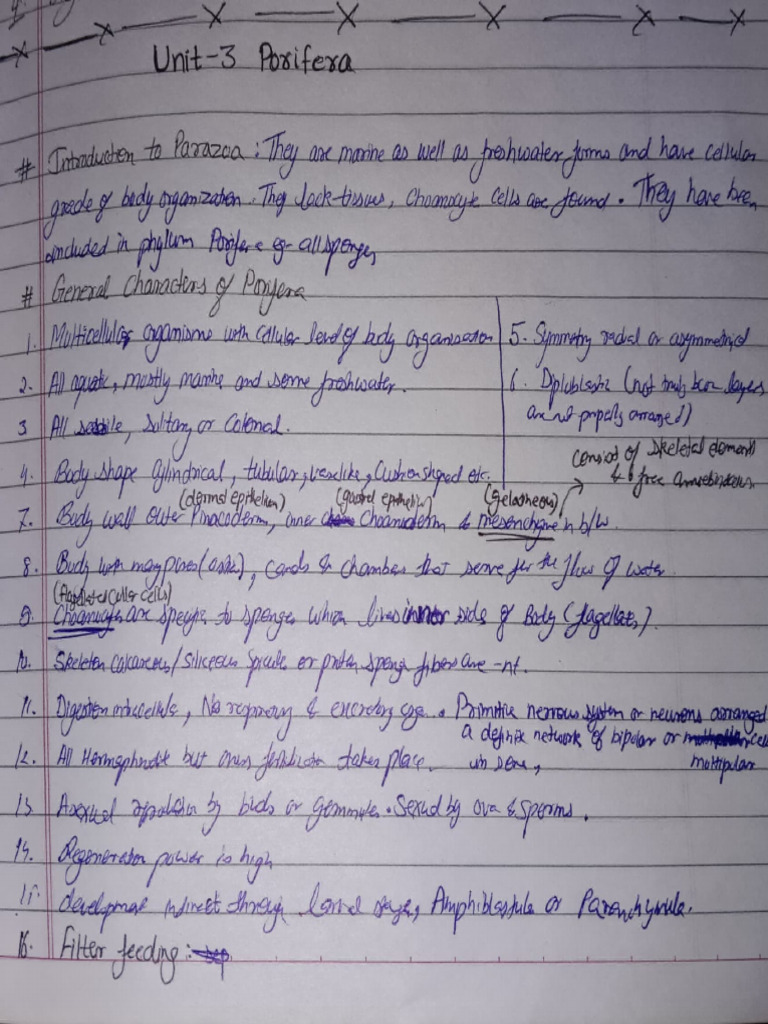 Unit-3 Porifera
# Introduction to Parazoa : They are marine as well as freshwater forms and have cellular
grade of body organization. They lack-tissues, Choanocyte cells are found. They have been
included in phylum Porifera eg- all sponges
# General Characters of Porifera
1. Multicellular organisms with cellular level of body organisation
2. All aquatic, mostly marine and some freshwater.
3 All sessile, solitary or Colonial.
4. Body shape Cylindrical, tubular, vaselike, Cushion shaped etc.
5. Symmetry radial or asymmetrical
6. Diploblastic (not truly bcoz layers
are not properly arranged)
consist of skeletal elements
& free amoebocytes
(dermal epithelium) (gastral epithelium) (gelatneous)
7. Body wall outer Pinacoderm, inner Choanoderm & mesenchyme in b/w.
8. Body with many pores (ostia), canals & chambers that serve for the flow of water
(flagellated collar cells)
9. Choanocytes are specific to sponges which lives inner side of Body (flagellates).
10. Skeleton calcareous/siliceous spicule or protein sponge fibers are -nt.
11. Digestion intracellular, No respiratory & excretory sys. . Primitive nervous system or neurons arranged
a definite network of bipolar or cells
in some, multipolar
12. All Hermaphrodite but cross fertilization takes place.
13. Asexual reproduction by buds or Gemmules. Sexual by ova & sperms.
14. Regeneration power is high
15. development indirect through larval stages, Amphiblastula or Parenchymula.
16. Filter feeding :-